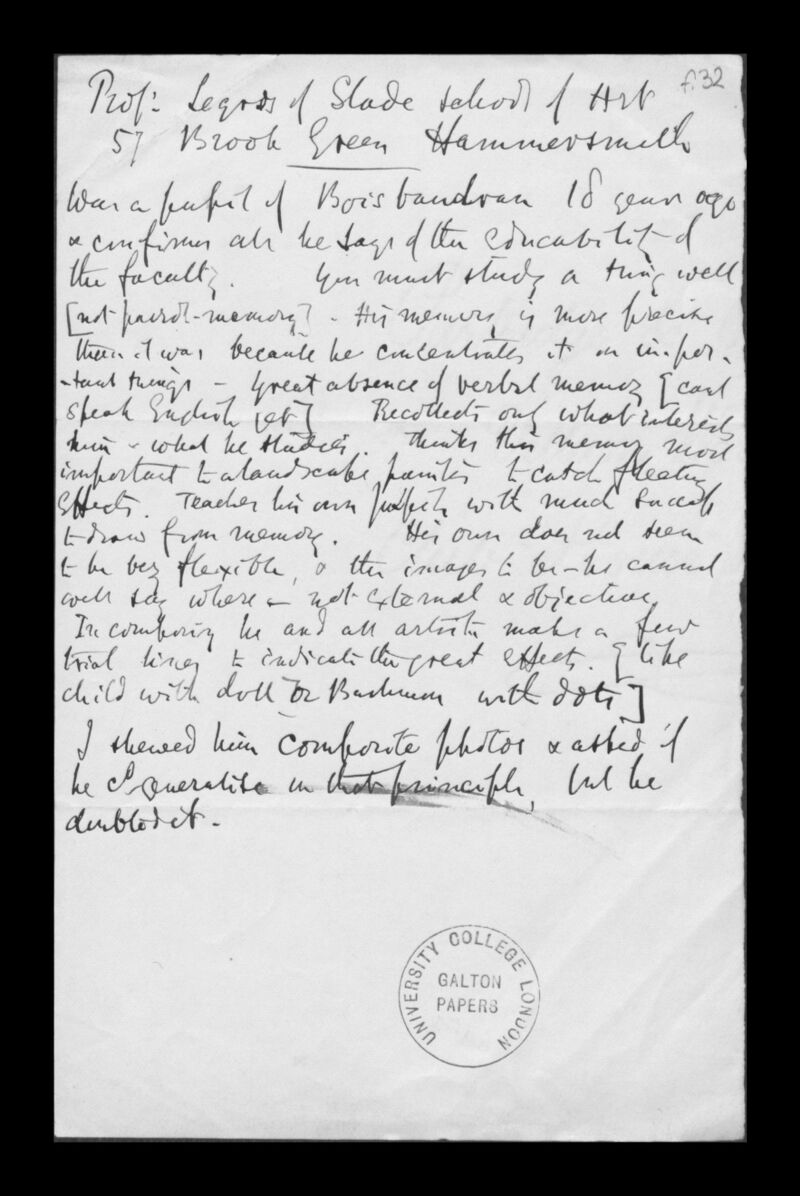 f.32
Prof: Legros of Slade School of Art
57 Brook Green Hammersmith
Was a pupil of Boisbaudran 18 years ago
& confirms all he says of the educability of
the faculty. You must study a thing well
[not parrot-memory] - His memory is more precise
than it was because he concentrates it on impor-
-tant things - Great absence of verbal memory [cant
speak English yet] Recollects only what interests
him - what he studies. Thinks this memory most
important to a landscape painter to catch fleeting
effects. Teaches his own pupils with much success
to draw from memory. His own does not seem
to be very flexible, & the images to be - he cannot
well say where - not external & objective.
In composing he and all artists make a few
trial lines to indicate the great effects. [like
child with doll or Bushman with dots]
I shewed him composite photos & asked if
he cd generalise on that principle, but he
doubted it -
UNIVERSITY COLLEGE LONDON
GALTON
PAPERS